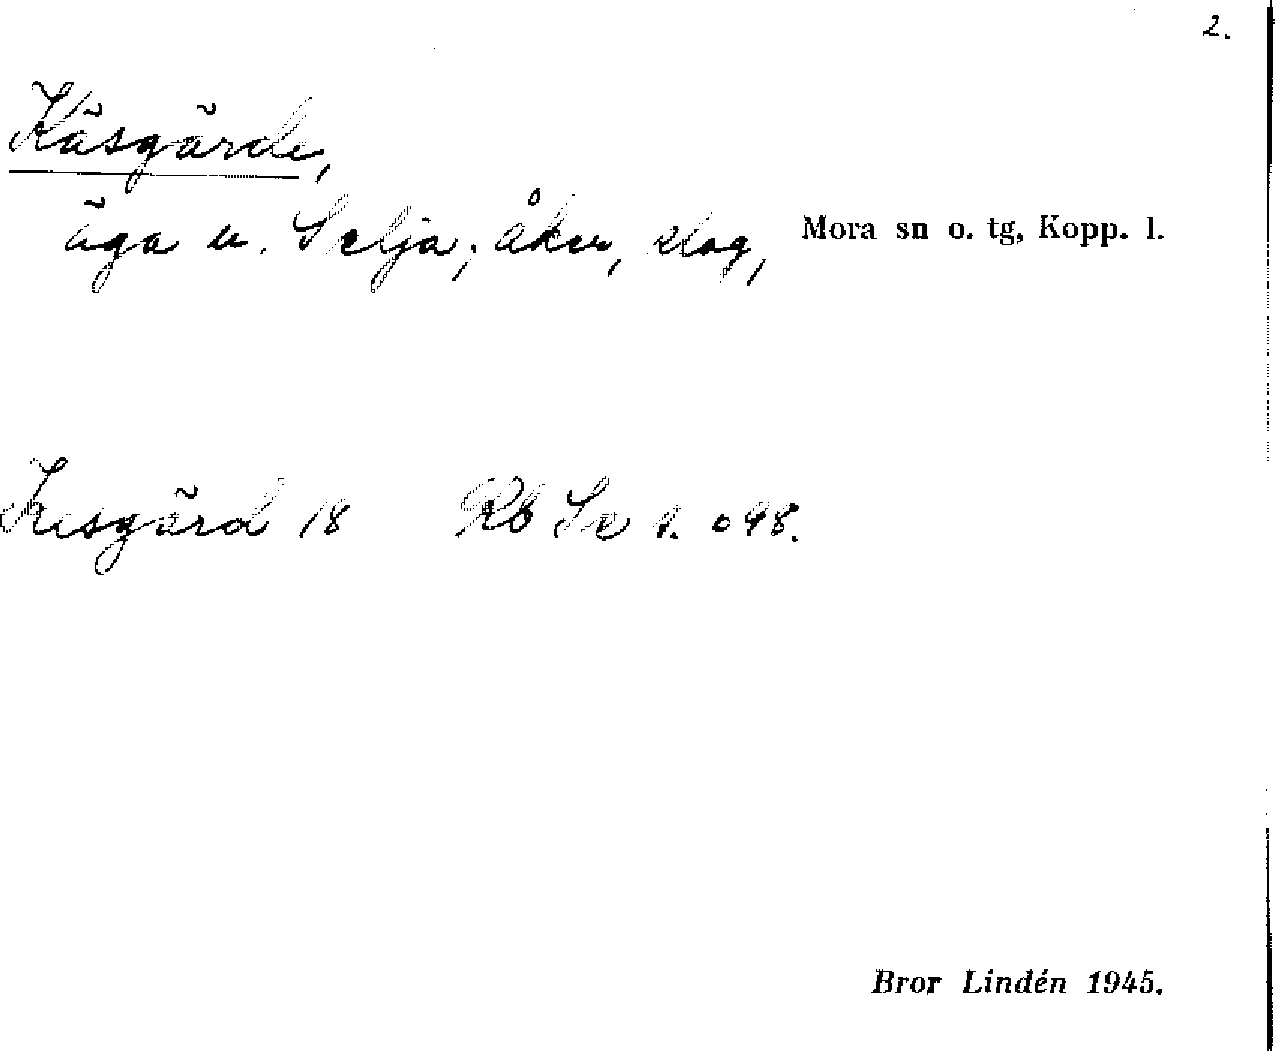 2.
Käsgärde,
äga u. Selja; åker, slog, Mora sn o. tg, Kopp. l.
Kesgärd 18 Rb Se s. 098.
Bror Lindén 1945.